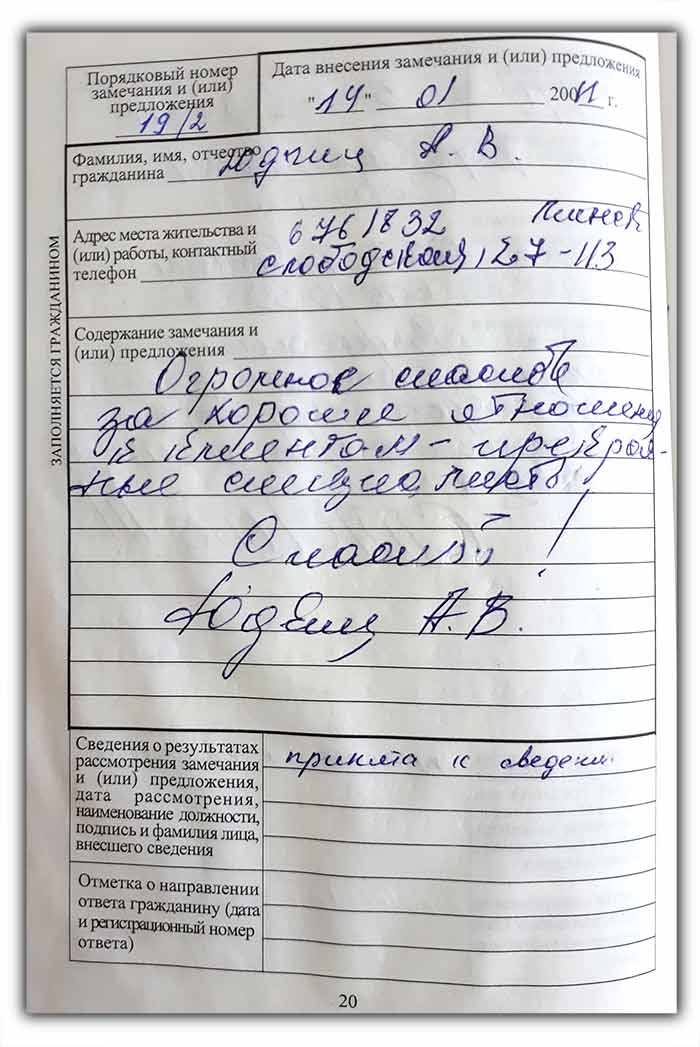 Порядковый номер
замечания и (или)
предложения
19/2
Дата внесения замечания и (или) предложения
"14" 01 200 11 г.
Фамилия, имя, отчество
гражданина А. В.
Адрес места жительства и
(или) работы, контактный
телефон
6761832 Минск
Слободская, 27-113
ЗАПОЛНЯЕТСЯ ГРАЖДАНИНОМ
Содержание замечания и
(или) предложения
Огромное спасибо
за хорошие отношения
к клиентам - прекрас-
ные специалисты
Спасибо!
А.В.
Сведения о результатах
рассмотрения замечания
и (или) предложения,
дата рассмотрения,
наименование должности,
подпись и фамилия лица,
внесшего сведения
принята к сведению
Отметка о направлении
ответа гражданину (дата
и регистрационный номер
ответа)
20